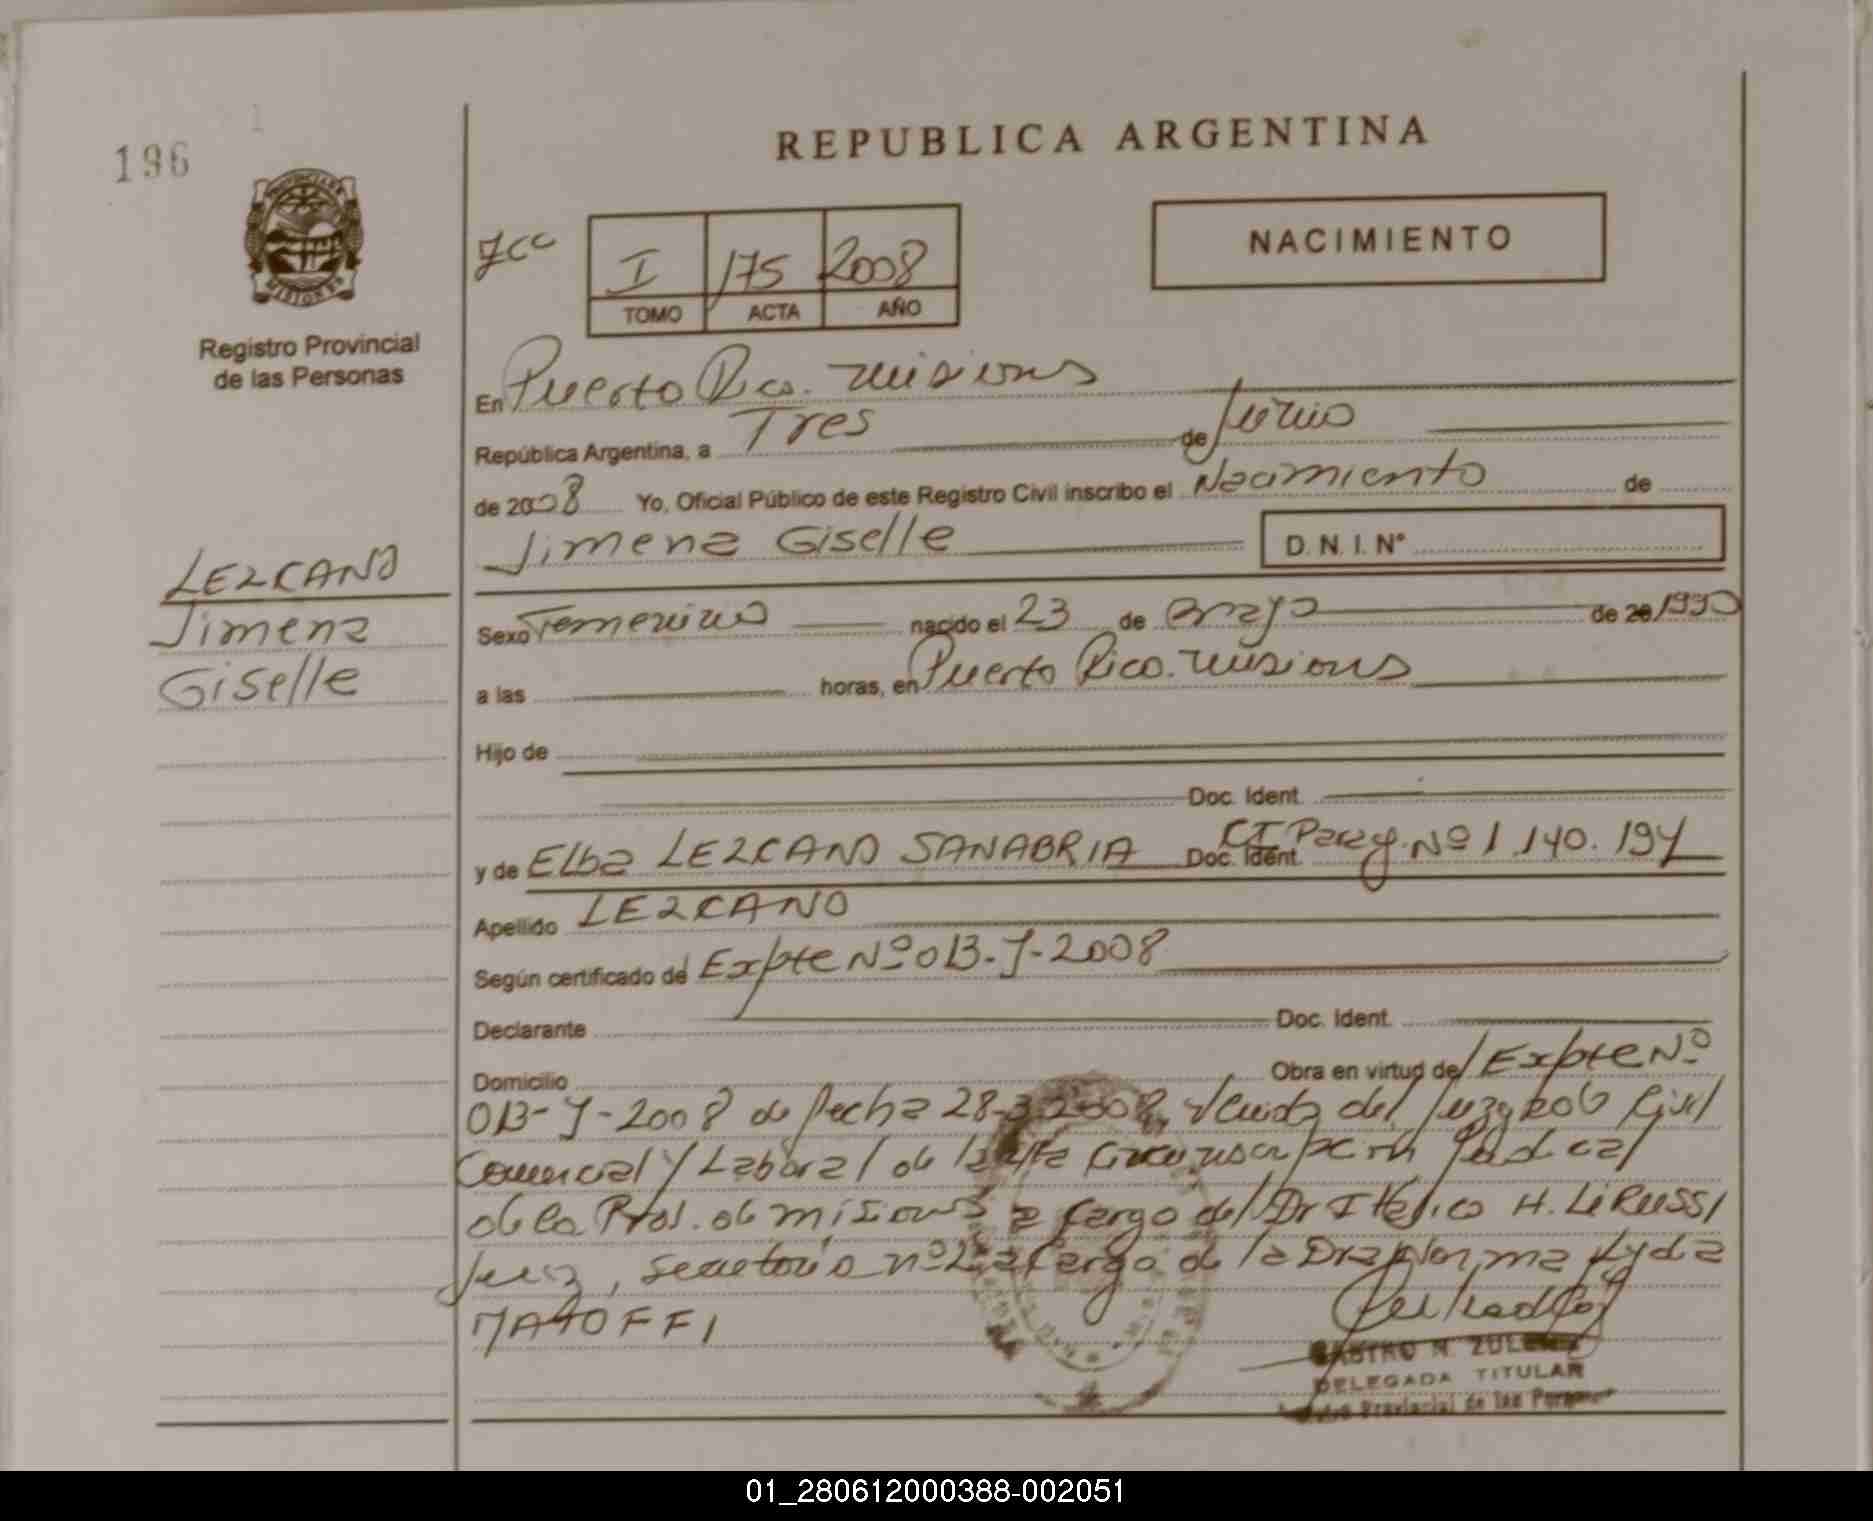 196
1
REPUBLICA ARGENTINA
PROVINCIA DE
MISIONES
Registro Provincial
de las Personas
I 175 2008
TOMO ACTA AÑO
NACIMIENTO
En Puerto Rico. Misiones
República Argentina, a Tres de Junio
de 2008 Yo, Oficial Público de este Registro Civil inscribo el Nacimiento de
Jimena Giselle
D. N. I. N°
LEZCANO
Jimena
Giselle
Sexo Femenino nacido el 23 de Mayo de 20 1990
a las horas, en Puerto Rico. Misiones
Hijo de
Doc. Ident.
y de Elba LEZCANO SANABRIA Doc. Ident. CI Parag. Nº 1.140.194
Apellido LEZCANO
Según certificado de Expte Nº OB-J-2008
Declarante Doc. Ident.
Domicilio Obra en virtud de Expte Nº
OB-J-2008 de fecha 28-3-2008, del Juzgado Civil
Comercial y Laboral de la 4ta Circunscripción Judicial
de la Prov. de Misiones a cargo del Dr Itálico H. Li Russi
Juez, Secretaría nº 2 a cargo de la Dra Norma Lyda
MATOFFI
CASTRO N. ZULEMA
DELEGADA TITULAR
Registro Provincial de las Personas
01_280612000388-002051